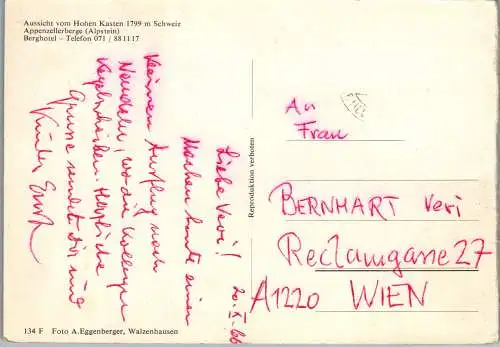 Aussicht vom Hohen Kasten 1799 m Schweiz
Appenzellerberge (Alpstein)
Berghotel – Telefon 071 / 88 11 17
20. X. 66
Liebe Veri!
Machen heute einen
kleinen Ausflug nach
wo die
Herzliche
Grüsse sendet Dir und
134 F Foto A. Eggenberger, Walzenhausen
Reproduktion verboten
An
Frau
BERNHART Veri
Reclamgasse 27
A1220 WIEN